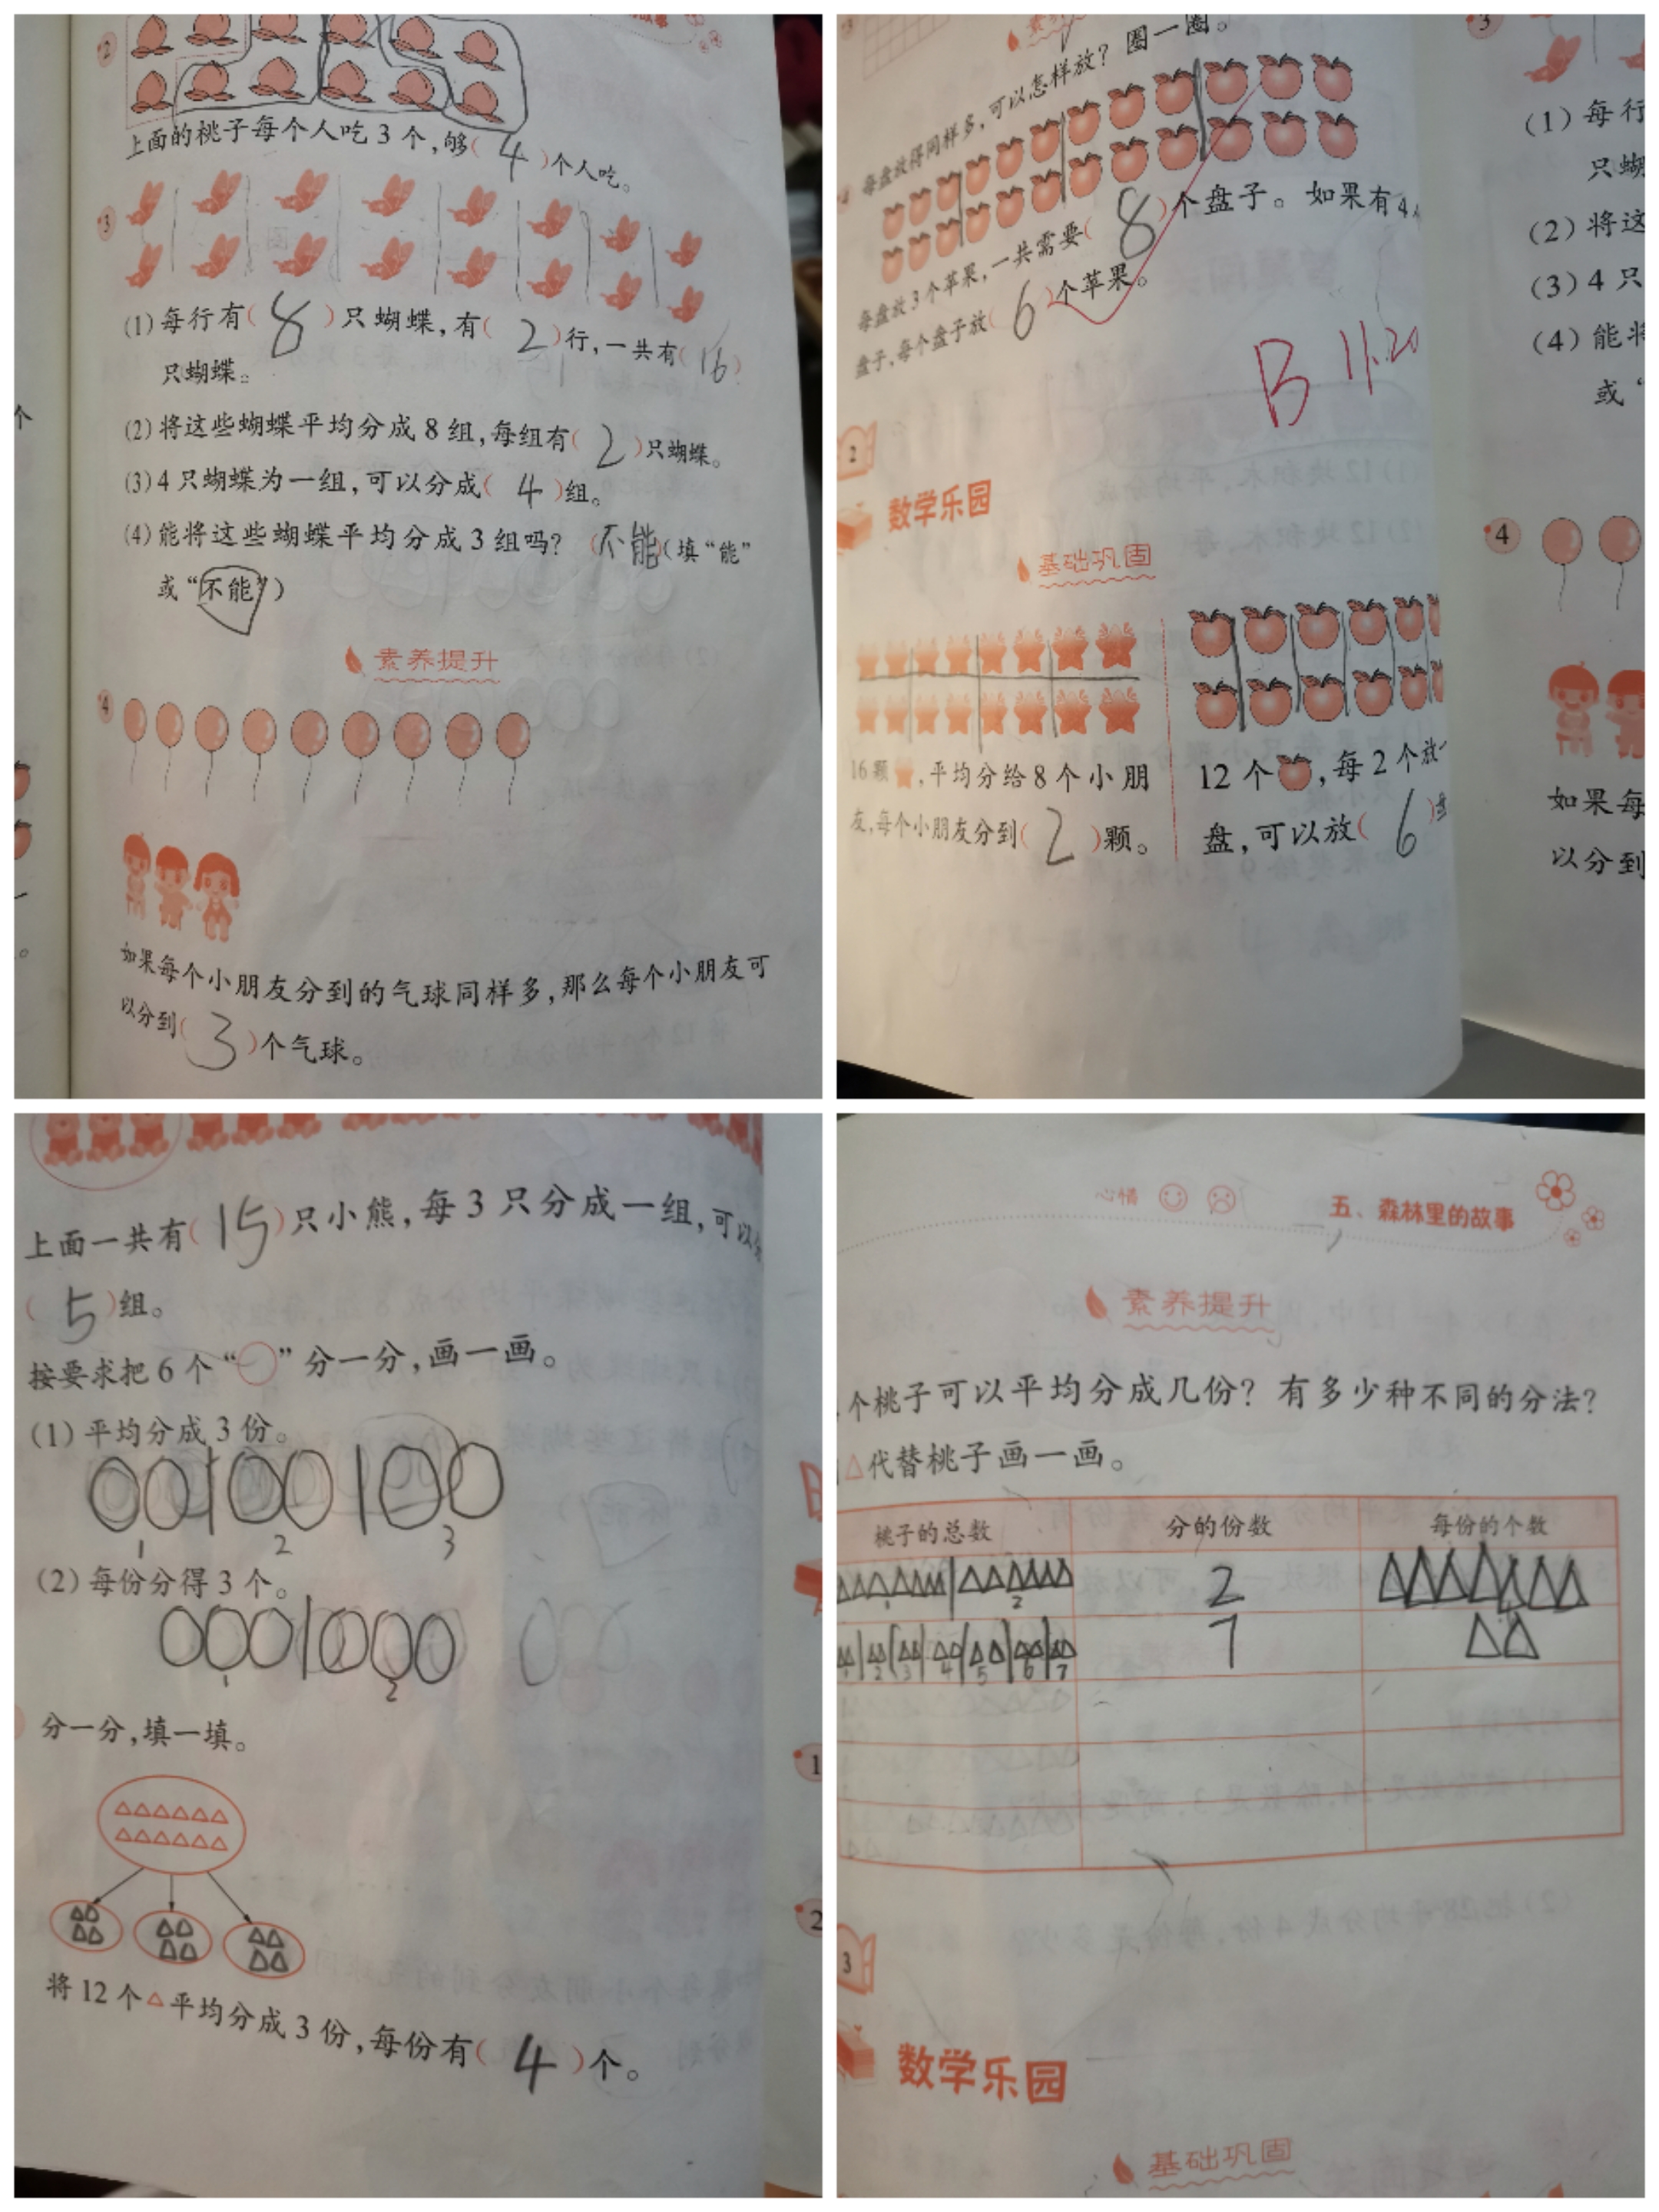 2
上面的桃子每个人吃3个,够(4)个人吃。
3
(1)每行有(8)只蝴蝶,有(2)行,一共有(16)
只蝴蝶。
(2)将这些蝴蝶平均分成8组,每组有(2)只蝴蝶。
(3)4只蝴蝶为一组,可以分成(4)组。
(4)能将这些蝴蝶平均分成3组吗?(不能)(填“能”
或“不能”)
素养提升
4
如果每个小朋友分到的气球同样多,那么每个小朋友可
以分到(3)个气球。
每盘放得同样多,可以怎样放?圈一圈。
每盘放3个苹果,一共需要(8)个盘子。如果有4
盘子,每个盘子放(6)个苹果。
B 11.20
2
数学乐园
基础巩固
16颗,平均分给8个小朋
友,每个小朋友分到(2)颗。
12个,每2个放
盘,可以放(6)
3
(1)每行
只蝴
(2)将这
(3)4只
(4)能将
或“
4
如果每
以分到
上面一共有(15)只小熊,每3只分成一组,可以
(5)组。
按要求把6个“○”分一分,画一画。
(1)平均分成3份。
1 2 3
(2)每份分得3个。
1 2
分一分,填一填。
将12个△平均分成3份,每份有(4)个。
1
2
心情
五、森林里的故事
素养提升
个桃子可以平均分成几份?有多少种不同的分法?
△代替桃子画一画。
桃子的总数 分的份数 每份的个数
1 2 2
1 2 3 4 5 6 7 7
3
数学乐园
基础巩固